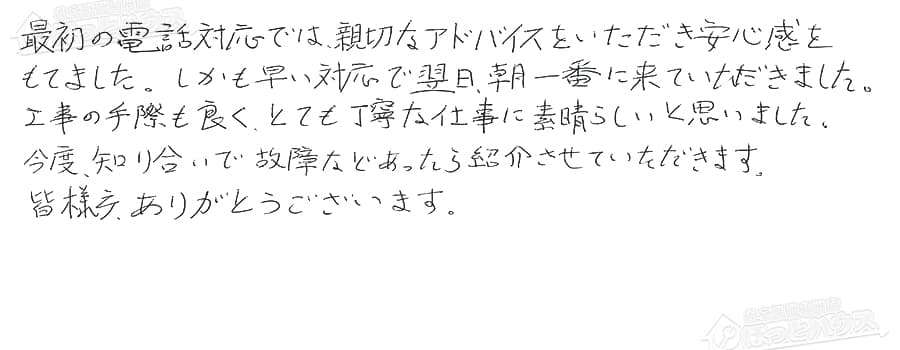 最初の電話対応では、親切なアドバイスをいただき安心感を
もてました。しかも早い対応で翌日、朝一番に来ていただきました。
工事の手際も良く、とても丁寧な仕事に素晴らしいと思いました。
今度、知り合いで故障などあったら紹介させていただきます。
皆様方、ありがとうございます。